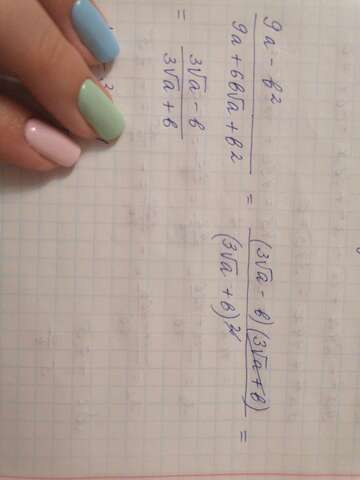 9a - b² / 9a + 6b√a + b² = (3√a - b)(3√a + b) / (3√a + b)² =
= 3√a - b / 3√a + b